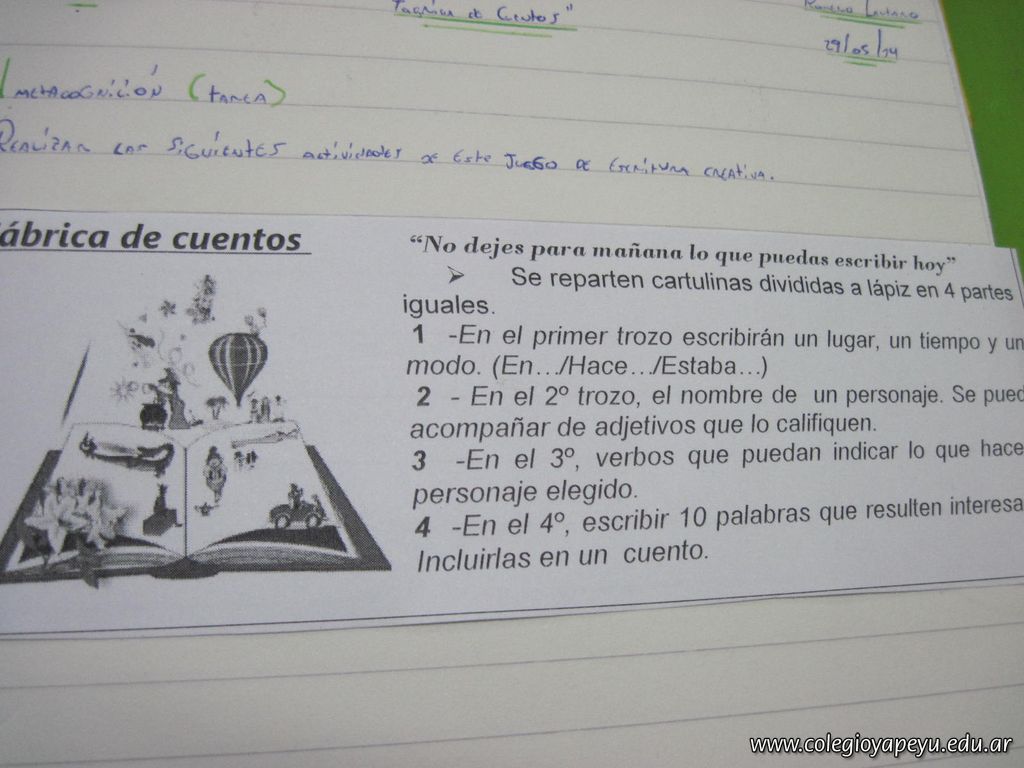 de Cuentos"
29/05/14
METACOGNICIÓN (TAREA)
REALIZAR LAS SIGUIENTES actividades DE Este JUEGO DE ESCRITURA CREATIVA.
ábrica de cuentos
“No dejes para mañana lo que puedas escribir hoy”
➢ Se reparten cartulinas divididas a lápiz en 4 partes
iguales.
1 -En el primer trozo escribirán un lugar, un tiempo y un
modo. (En…/Hace…/Estaba…)
2 - En el 2º trozo, el nombre de un personaje. Se pued
acompañar de adjetivos que lo califiquen.
3 -En el 3º, verbos que puedan indicar lo que hace
personaje elegido.
4 -En el 4º, escribir 10 palabras que resulten interesa
Incluirlas en un cuento.
www.colegioyapeyu.edu.ar